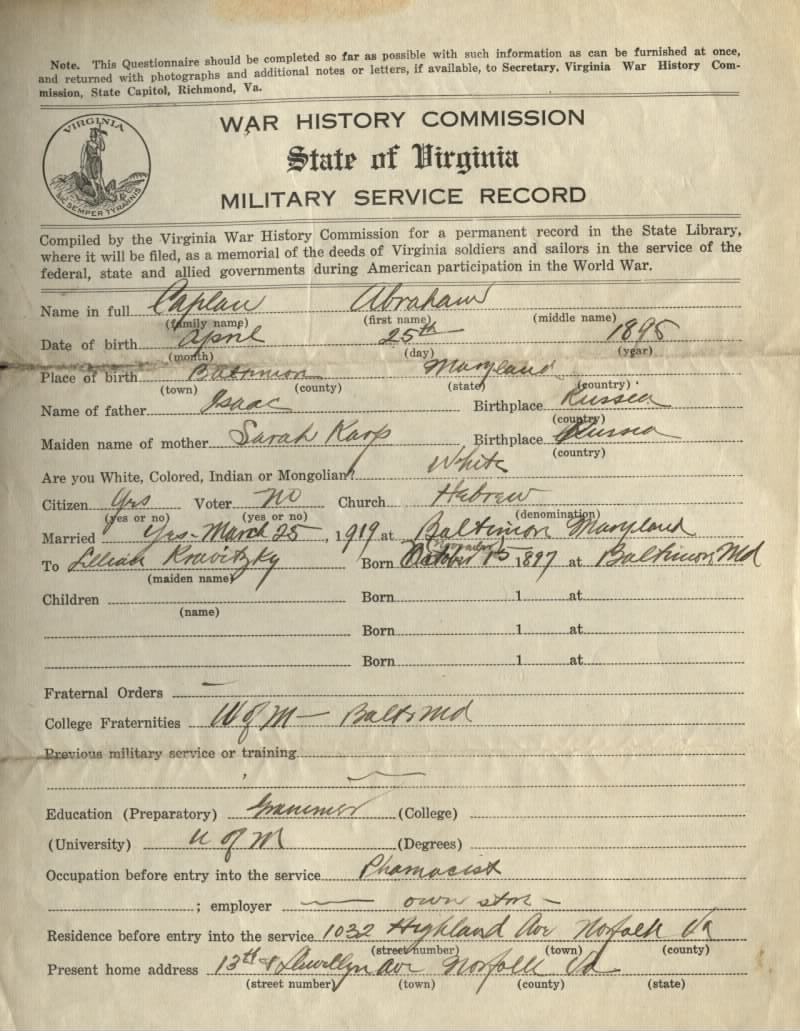 Note. This Questionnaire should be completed so far as possible with such information as can be furnished at once,
and returned with photographs and additional notes or letters, if available, to Secretary, Virginia War History Com-
mission, State Capitol, Richmond, Va.
VIRGINIA
SIC SEMPER TYRANNIS
WAR HISTORY COMMISSION
State of Virginia
MILITARY SERVICE RECORD
Compiled by the Virginia War History Commission for a permanent record in the State Library,
where it will be filed, as a memorial of the deeds of Virginia soldiers and sailors in the service of the
federal, state and allied governments during American participation in the World War.
Name in full Caplan Abraham
(family name) (first name) (middle name)
Date of birth April 25th 1895
(month) (day) (year)
Place of birth Baltimore Maryland
(town) (county) (state) (country)
Name of father Isaac Birthplace Russia
(country)
Maiden name of mother Sarah Karp Birthplace Russia
(country)
Are you White, Colored, Indian or Mongolian? White
Citizen Yes Voter no Church Hebrew
(yes or no) (yes or no) (denomination)
Married Yes - March 25, 1919 at Baltimore Maryland
To Lillian Kravitzky Born October 15 1897 at Baltimore, Md
(maiden name)
Children Born 1 at
(name)
Born 1 at
Born 1 at
Fraternal Orders —
College Fraternities U of M — Balto Md
Previous military service or training
Education (Preparatory) Grammer (College)
(University) U of M (Degrees)
Occupation before entry into the service Phamacist
; employer — own store —
Residence before entry into the service 1032 Highland Ave Norfolk Va
(street number) (town) (county)
Present home address 13th & Llewellyn Ave Norfolk Va
(street number) (town) (county) (state)